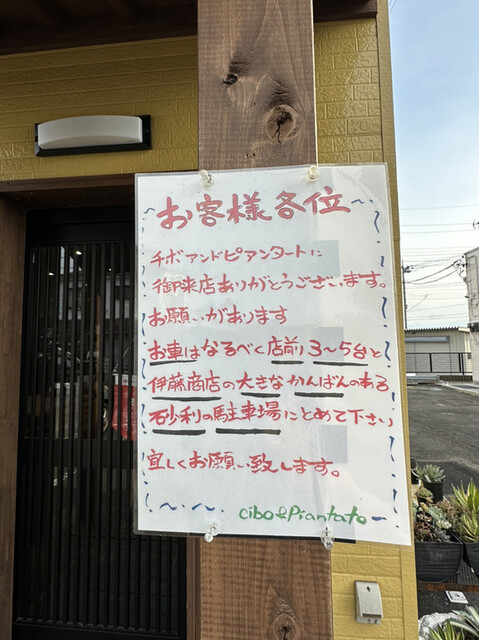 お客様各位
チボアンドピアンタートに
御来店ありがとうございます。
お願いがあります
お車はなるべく店前3〜5台と
伊藤商店の大きなかんばんのある
砂利の駐車場にとめて下さい
宜しくお願い致します。
cibo&Piantato